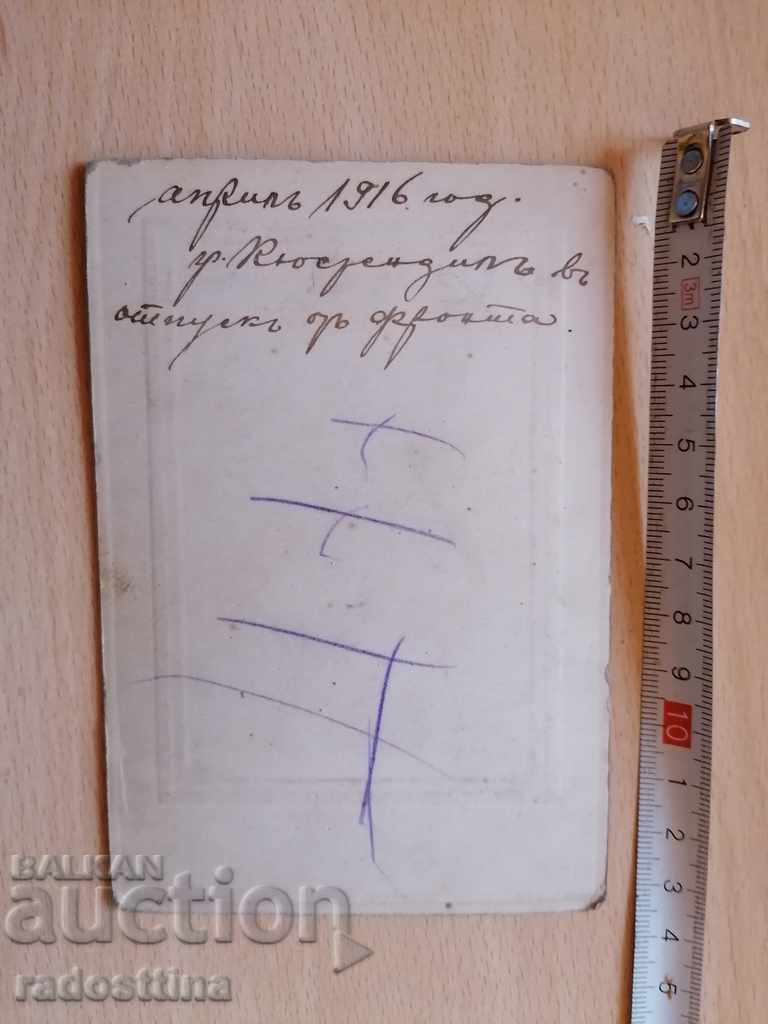 априлъ 1916 год.
гр. Кюстендилъ въ
отпускъ отъ фронта.
3m
2
3
4
5
6
7
8
9
10
1
2
3
4
5
BALKAN
auction
radosttina